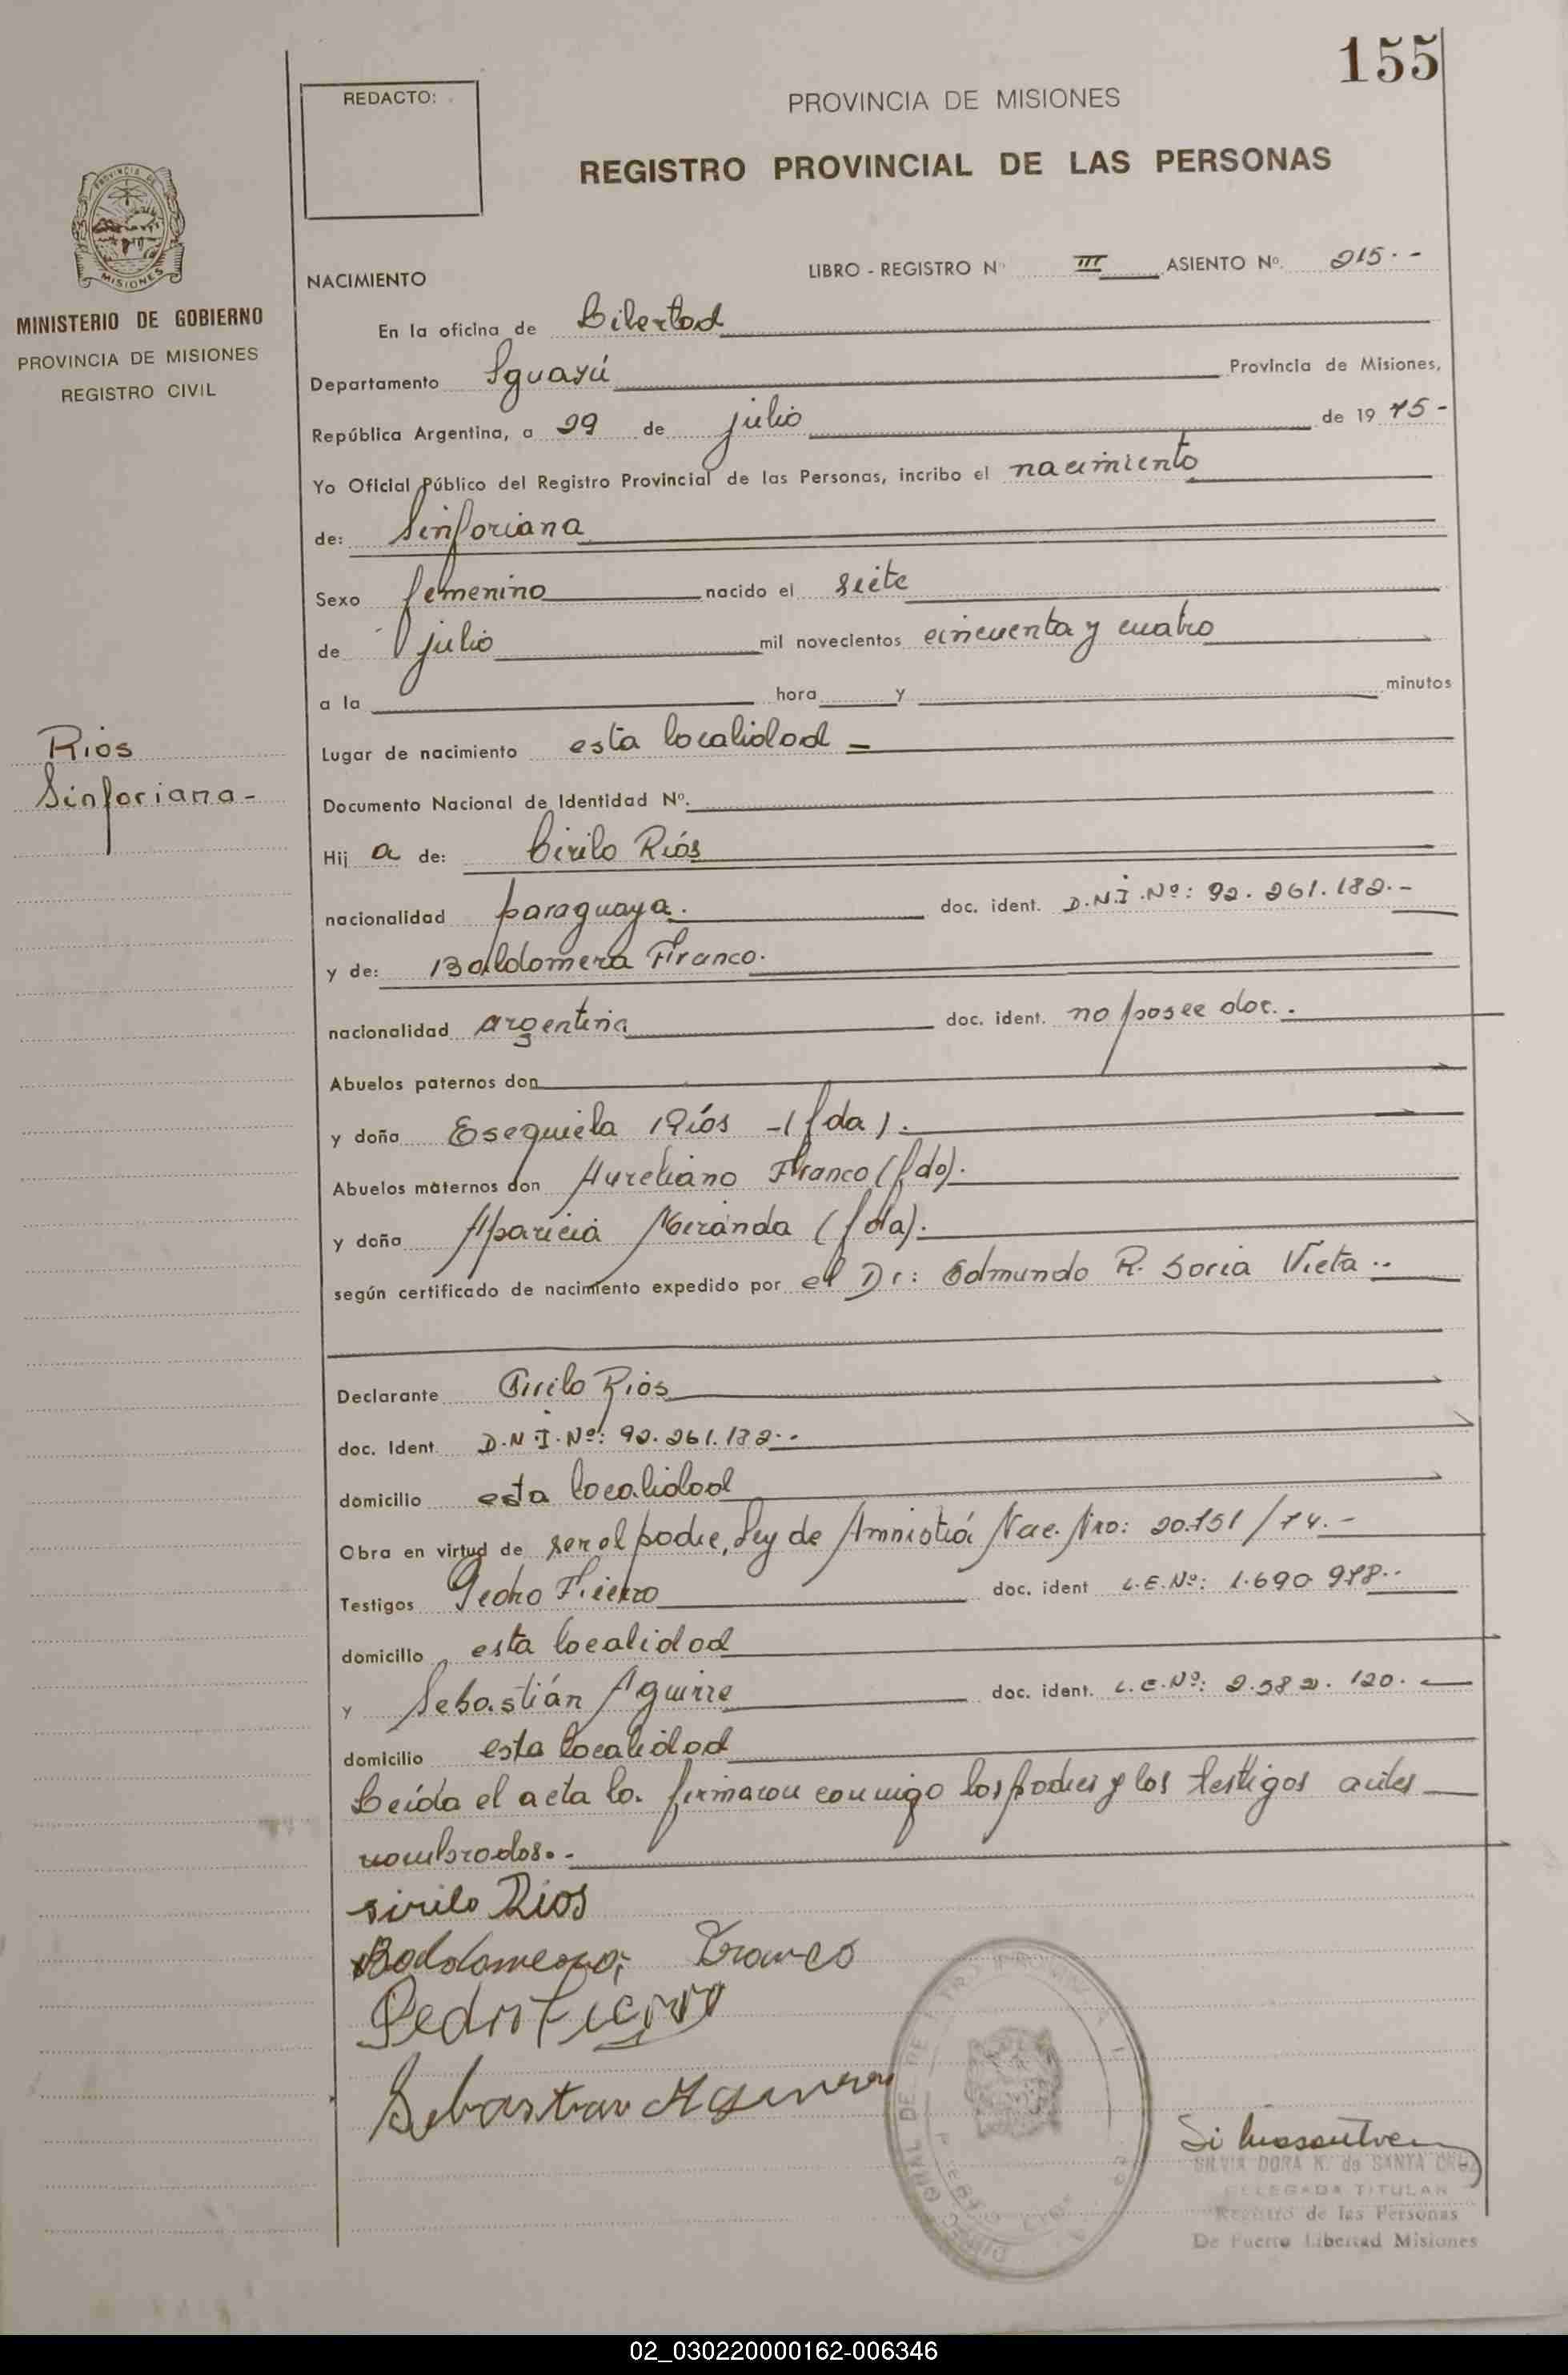 155
REDACTO:
PROVINCIA DE MISIONES
REGISTRO PROVINCIAL DE LAS PERSONAS
MISIONES
MINISTERIO DE GOBIERNO
PROVINCIA DE MISIONES
REGISTRO CIVIL
NACIMIENTO LIBRO - REGISTRO Nº III ASIENTO Nº. 215.-
En la oficina de Libertad
Departamento Iguazú Provincia de Misiones,
República Argentina, a 29 de julio de 1975-
Yo Oficial Público del Registro Provincial de las Personas, incribo el nacimiento
de: Sinforiana
Sexo femenino nacido el siete
de julio mil novecientos cincuenta y cuatro
a la hora y minutos
Lugar de nacimiento esta localidad -
Rios
Sinforiana-
Documento Nacional de Identidad Nº.
Hij a de: Cirilo Ríos
nacionalidad paraguaya. doc. ident. D.N.I.Nº: 92.261.182.-
y de: Baldomera Franco.
nacionalidad argentina doc. ident. no posee doc..
Abuelos paternos don
y doña Esequiela Ríos -(fda).
Abuelos maternos don Aureliano Franco (fdo).
y doña Aparicia Miranda (fda).
según certificado de nacimiento expedido por el Dr: Edmundo R. Soria Vieta..
Declarante Cirilo Rios
doc. Ident. D.N.I.Nº: 92.261.182..
domicilio esta localidad
Obra en virtud de ser el padre, Ley de Amnistiá Nac. Nro: 20.751/74.-
Testigos Pedro Fierro doc. ident L.E.Nº: 1.690 978..
domicilio esta localidad
y Sebastián Aguirre doc. ident. L.E.Nº: 2.582.120.
domicilio esta localidad
Leída el acta la firmaron conmigo los padres y los testigos antes
nombrados.-
sirilo Rios
Baldomera Franco
Pedro Fierro
Sebastian Aguirre
SILVIA DORA K. de SANTA CRUZ
DELEGADA TITULAR
Registro de las Personas
De Puerto Libertad Misiones
02_030220000162-006346